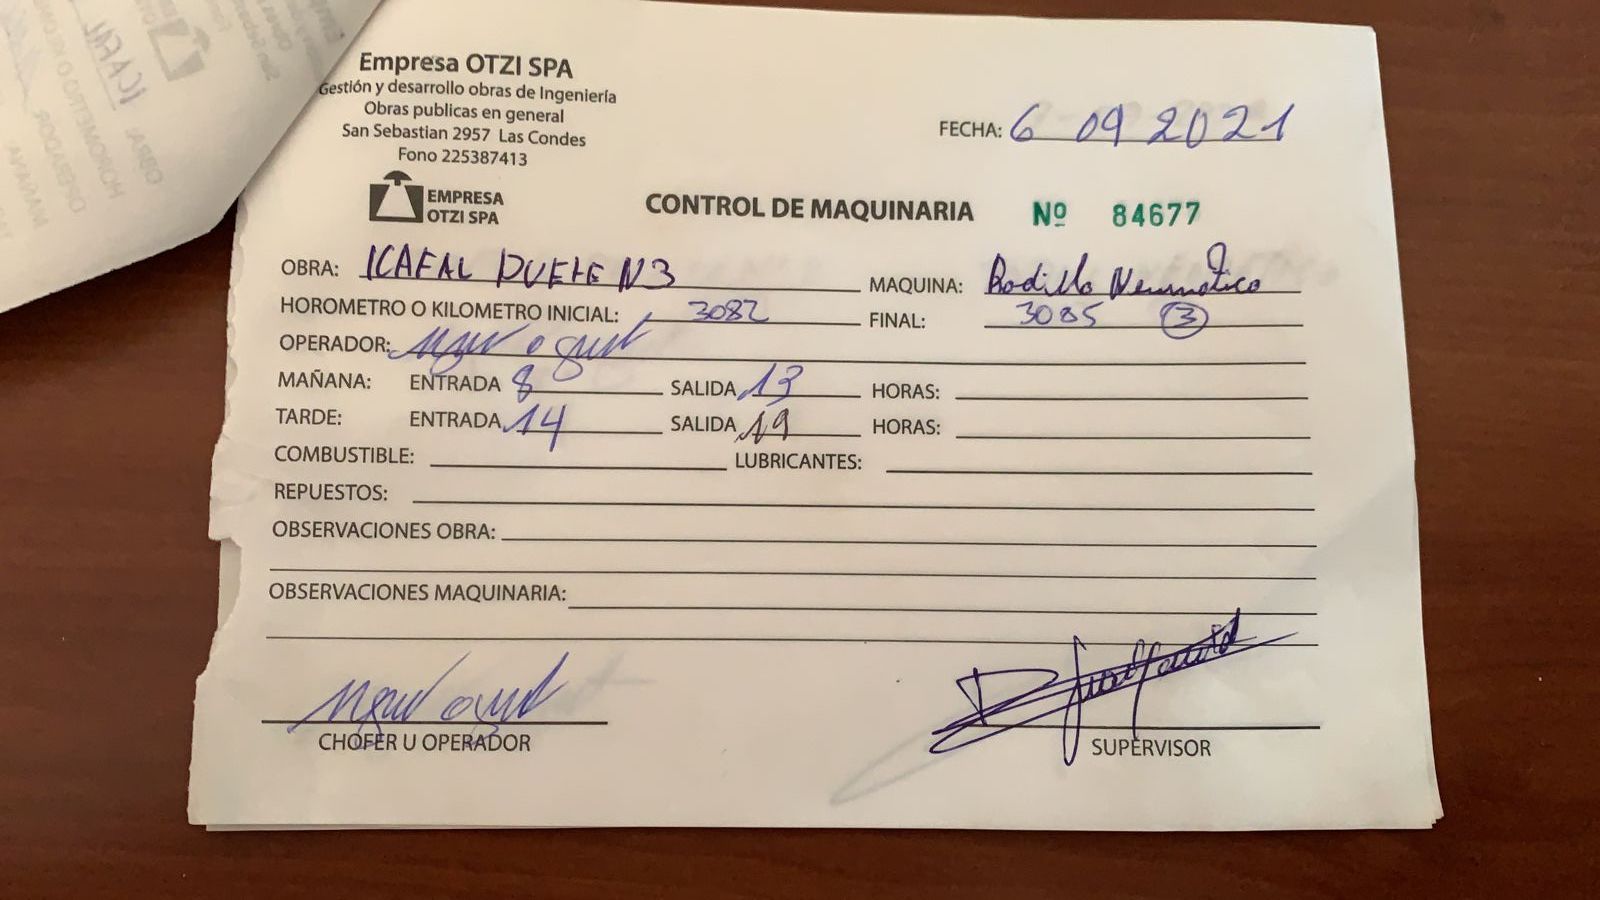 Empresa OTZI SPA
Gestión y desarrollo obras de Ingeniería
Obras publicas en general
San Sebastian 2957 Las Condes
Fono 225387413
FECHA: 6 09 2021
EMPRESA
OTZI SPA
CONTROL DE MAQUINARIA Nº 84677
OBRA: ICAFAL N3 MAQUINA: Rodillo Neumático
HOROMETRO O KILOMETRO INICIAL: 3082 FINAL: 3085 3
OPERADOR:
MAÑANA: ENTRADA 8 SALIDA 13 HORAS:
TARDE: ENTRADA 14 SALIDA 19 HORAS:
COMBUSTIBLE: LUBRICANTES:
REPUESTOS:
OBSERVACIONES OBRA:
OBSERVACIONES MAQUINARIA:
CHOFER U OPERADOR SUPERVISOR